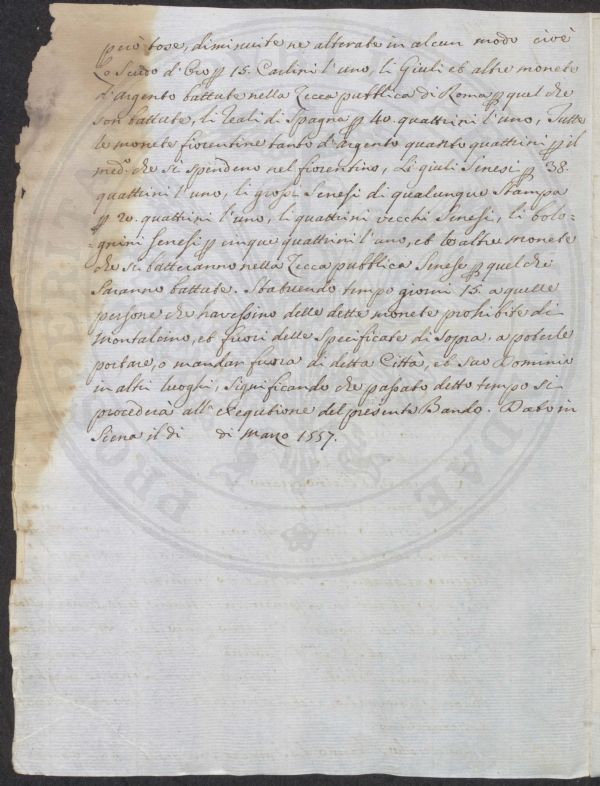 però tose, diminuite ne alterate in alcun modo cioè
Lo Scudo d'Oro p 15. Carlini l'uno, li Giuli et altre monete
d'Argento battute nella Zecca pubblica di Roma p quel che
son battute, li Reali di Spagna p 40. quattrini l'uno, Tutte
le monete fiorentine tanto d'argento quanto quattrini p il
med.º che si spendono nel fiorentino, Li giuli Senesi p 38.
quattrini l'uno, li grossi Senesi di qualunque Stampa
p 20. quattrini l'uno, li quattrini vecchi Senesi, li bolo-
=gnini Senesi p cinque quattrini l'uno, et le altre monete
che si batteranno nella Zecca pubblica Senese p quel che
saranno battute. Statuendo tempo giorni 15. a quelle
persone che havessino delle dette monete prohibite di
Montalcino, et fuori delle specificate di sopra. a poterle
portare, o mandar fuora di detta Città, et suo Dominio
in altri luoghi, significando che passato detto tempo si
procederà all'exequtione del presente Bando. Dato in
Siena il dì di Marzo 1557.
PROSPERITA DAE